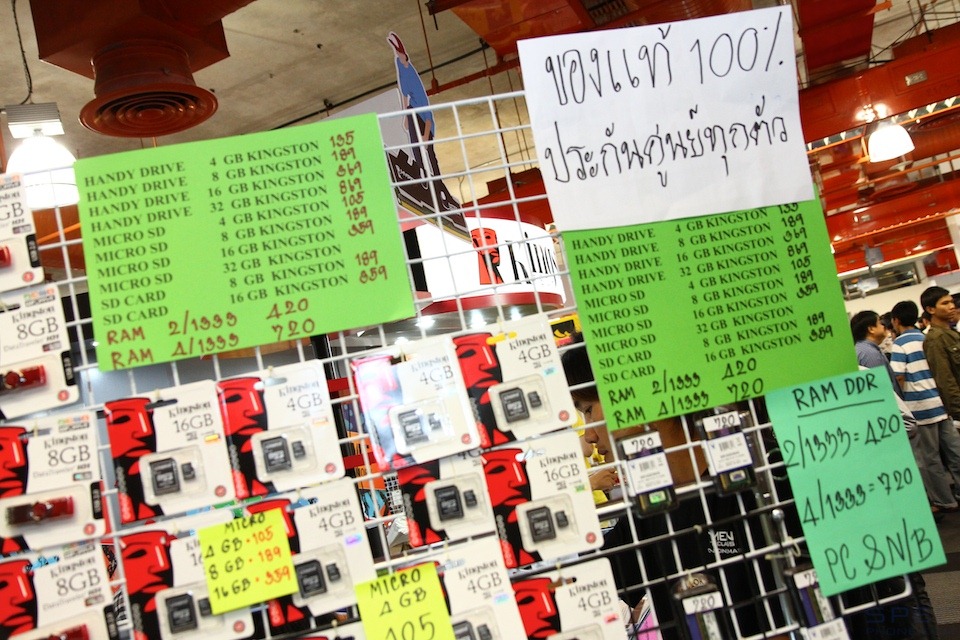 ของแท้ 100%
ประกันศูนย์ทุกตัว
HANDY DRIVE 4 GB KINGSTON 135
HANDY DRIVE 8 GB KINGSTON 189
HANDY DRIVE 16 GB KINGSTON 359
HANDY DRIVE 32 GB KINGSTON 869
MICRO SD 4 GB KINGSTON 105
MICRO SD 8 GB KINGSTON 189
MICRO SD 16 GB KINGSTON 359
MICRO SD 32 GB KINGSTON
SD CARD 8 GB KINGSTON 189
SD CARD 16 GB KINGSTON 359
RAM 2/1333 420
RAM 4/1333 720
HANDY DRIVE 4 GB KINGSTON 135
HANDY DRIVE 8 GB KINGSTON 189
HANDY DRIVE 16 GB KINGSTON 359
HANDY DRIVE 32 GB KINGSTON 869
MICRO SD 4 GB KINGSTON 105
MICRO SD 8 GB KINGSTON 189
MICRO SD 16 GB KINGSTON 359
MICRO SD 32 GB KINGSTON
SD CARD 8 GB KINGSTON 189
SD CARD 16 GB KINGSTON 359
RAM 2/1333 420
RAM 4/1333 720
RAM DDR
2/1333=420
4/1333=720
PC & N/B
MICRO
4 GB • 105
8 GB • 189
16GB • 359
MICRO
4 GB
105
Kingston
8GB
DataTraveler
Kingston
8GB
DataTraveler
Kingston
8GB
Kingston
16GB
Kingston
4GB
Kingston
4GB
Kingston
4GB
Kingston
16GB
Kingston
4GB
Kingston
4GB
Kingston
4GB
720
720
720
720